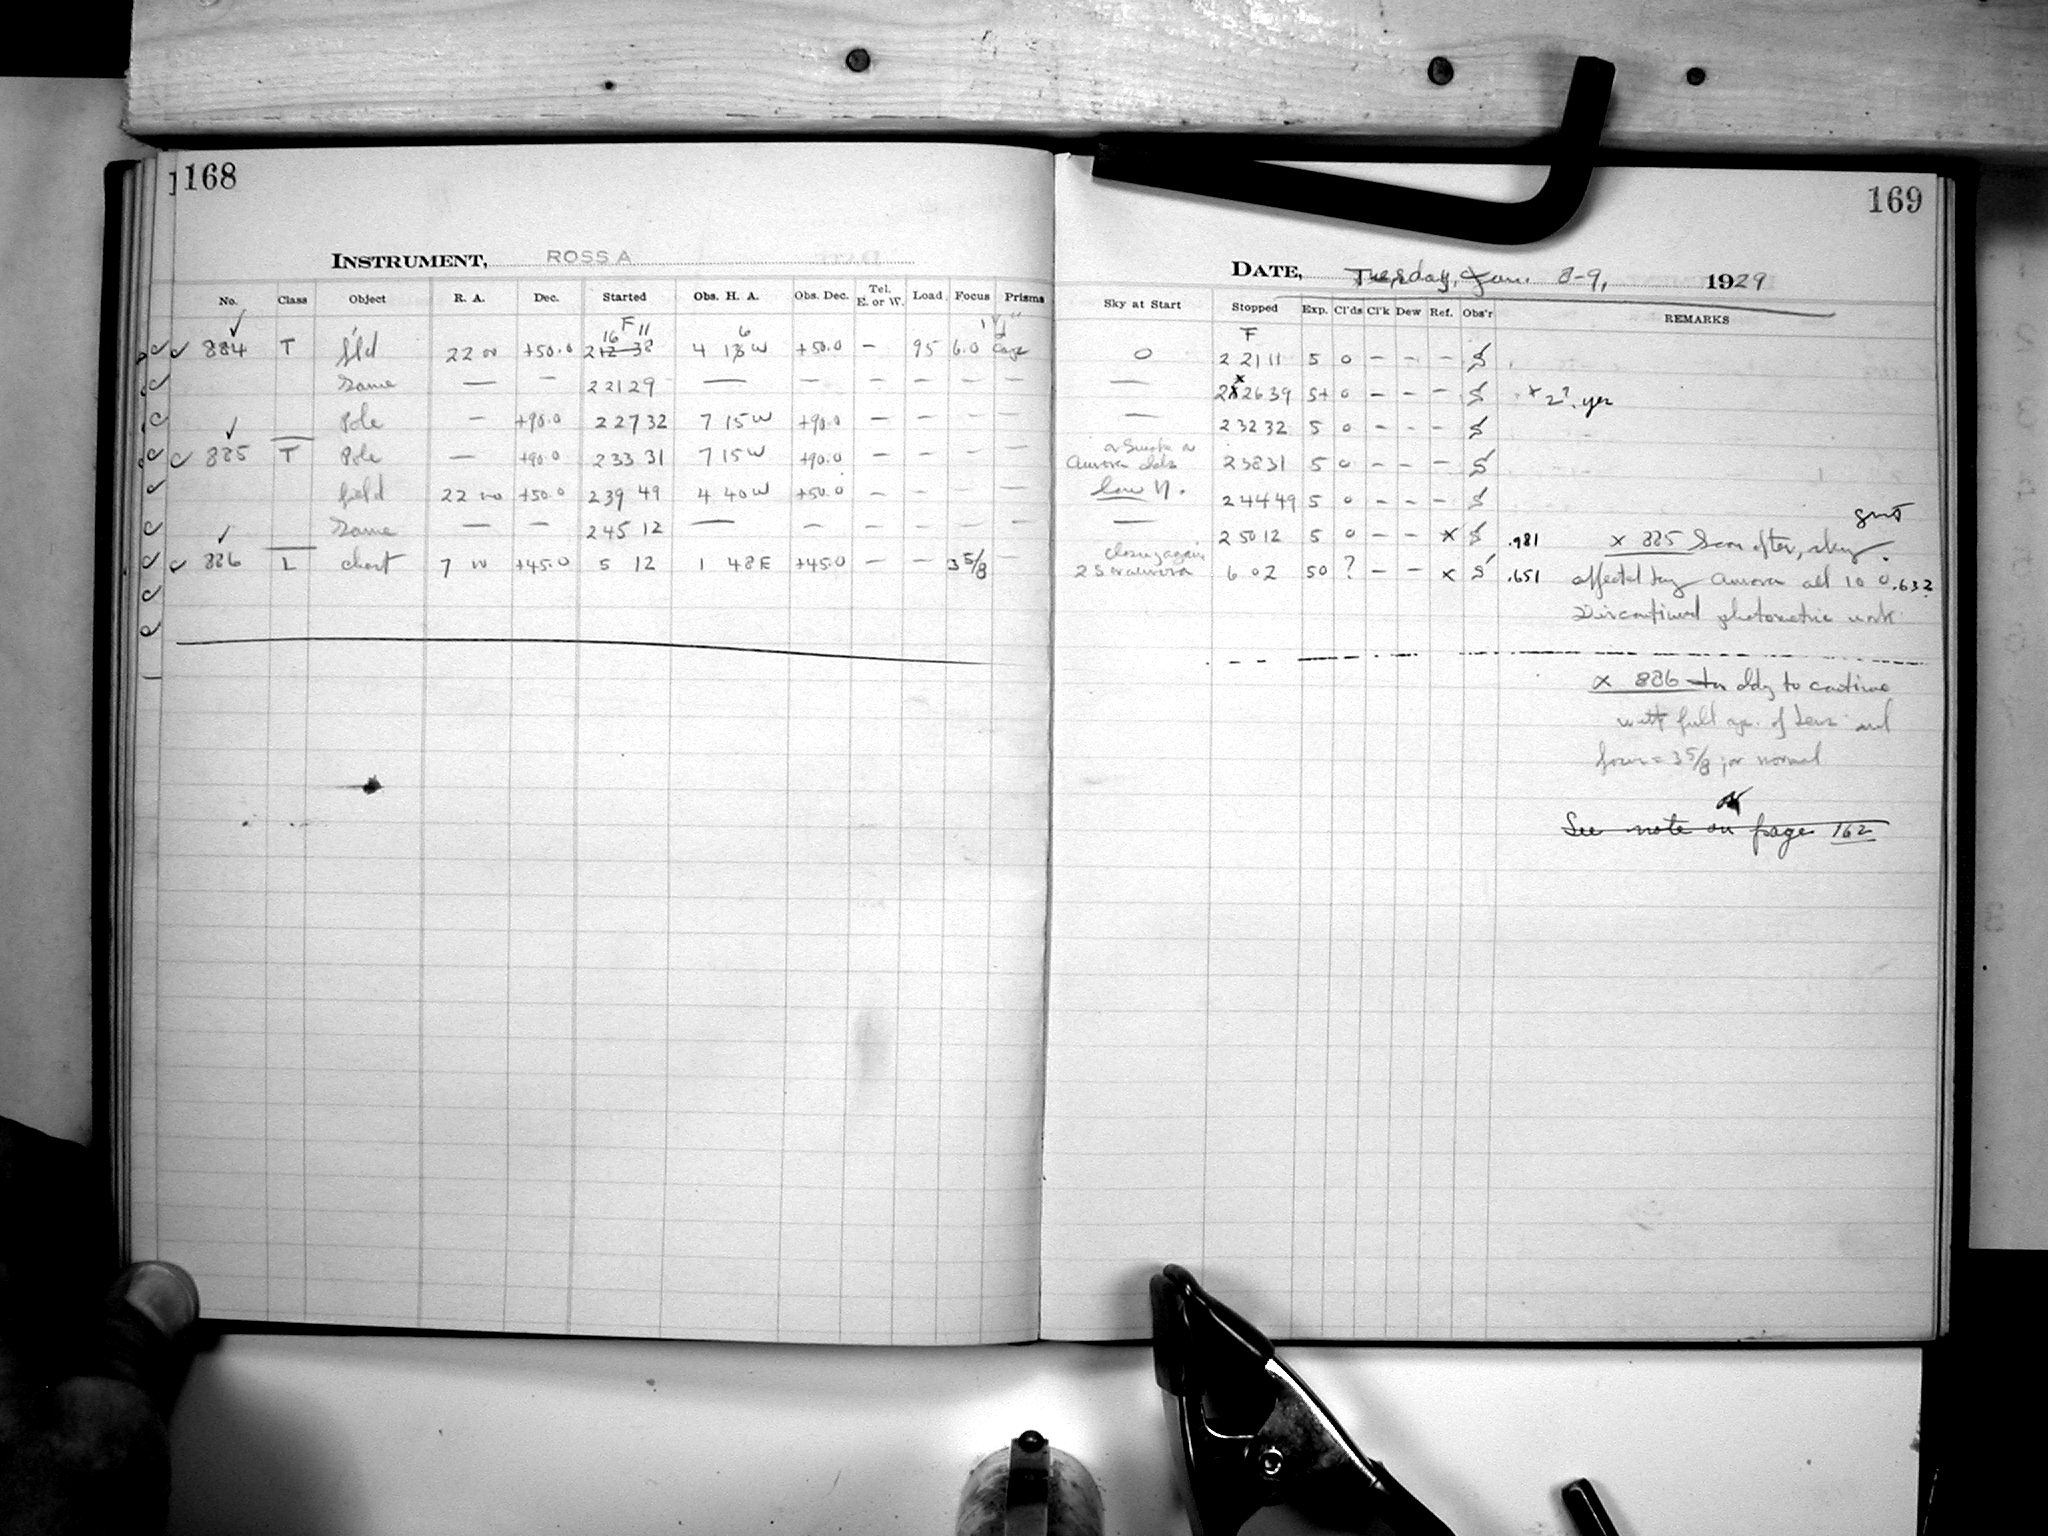 168
INSTRUMENT, ROSS A
No. Class Object R. A. Dec. Started Obs. H. A. Obs. Dec. Tel. E. or W. Load Focus Prisms
F 11
884 T f'ld 22 00 +50.0 2 16 4 6 W +50.0 — 95 6.0 Cage
Same — — 2 21 29 — — — — — —
Pole — +90.0 2 27 32 7 15 W +90.0 — — — —
885 T Pole — +90.0 2 33 31 7 15 W +90.0 — — — —
field 22 00 +50.0 2 39 49 4 40 W +50.0 — — — —
Same — — 2 45 12 — — — — — —
886 L chart 7 00 +45.0 5 12 1 48 E +45.0 — — 3 5/8
169
DATE, Tuesday, Jan. 8-9, 1929
Sky at Start Stopped Exp. Cl'ds Cl'k Dew Ref. Obs'r REMARKS
F
0 2 21 11 5 0 — — — S
— 2 26 39 5+ 0 — — — S x 2? yes
— 2 32 32 5 0 — — — S
Aurora 2 38 31 5 0 — — — S
low N. 2 44 49 5 0 — — — S
— 2 50 12 5 0 — — x S .981 x 885 Soon after, sky
close again
aurora 6 02 50 ? — — x S .651 affected by Aurora alt 10° .632
Discontinued photometric work
x 886 to continue
with full ap. of Lens and
focus = 3 5/8 for normal
See note on page 162